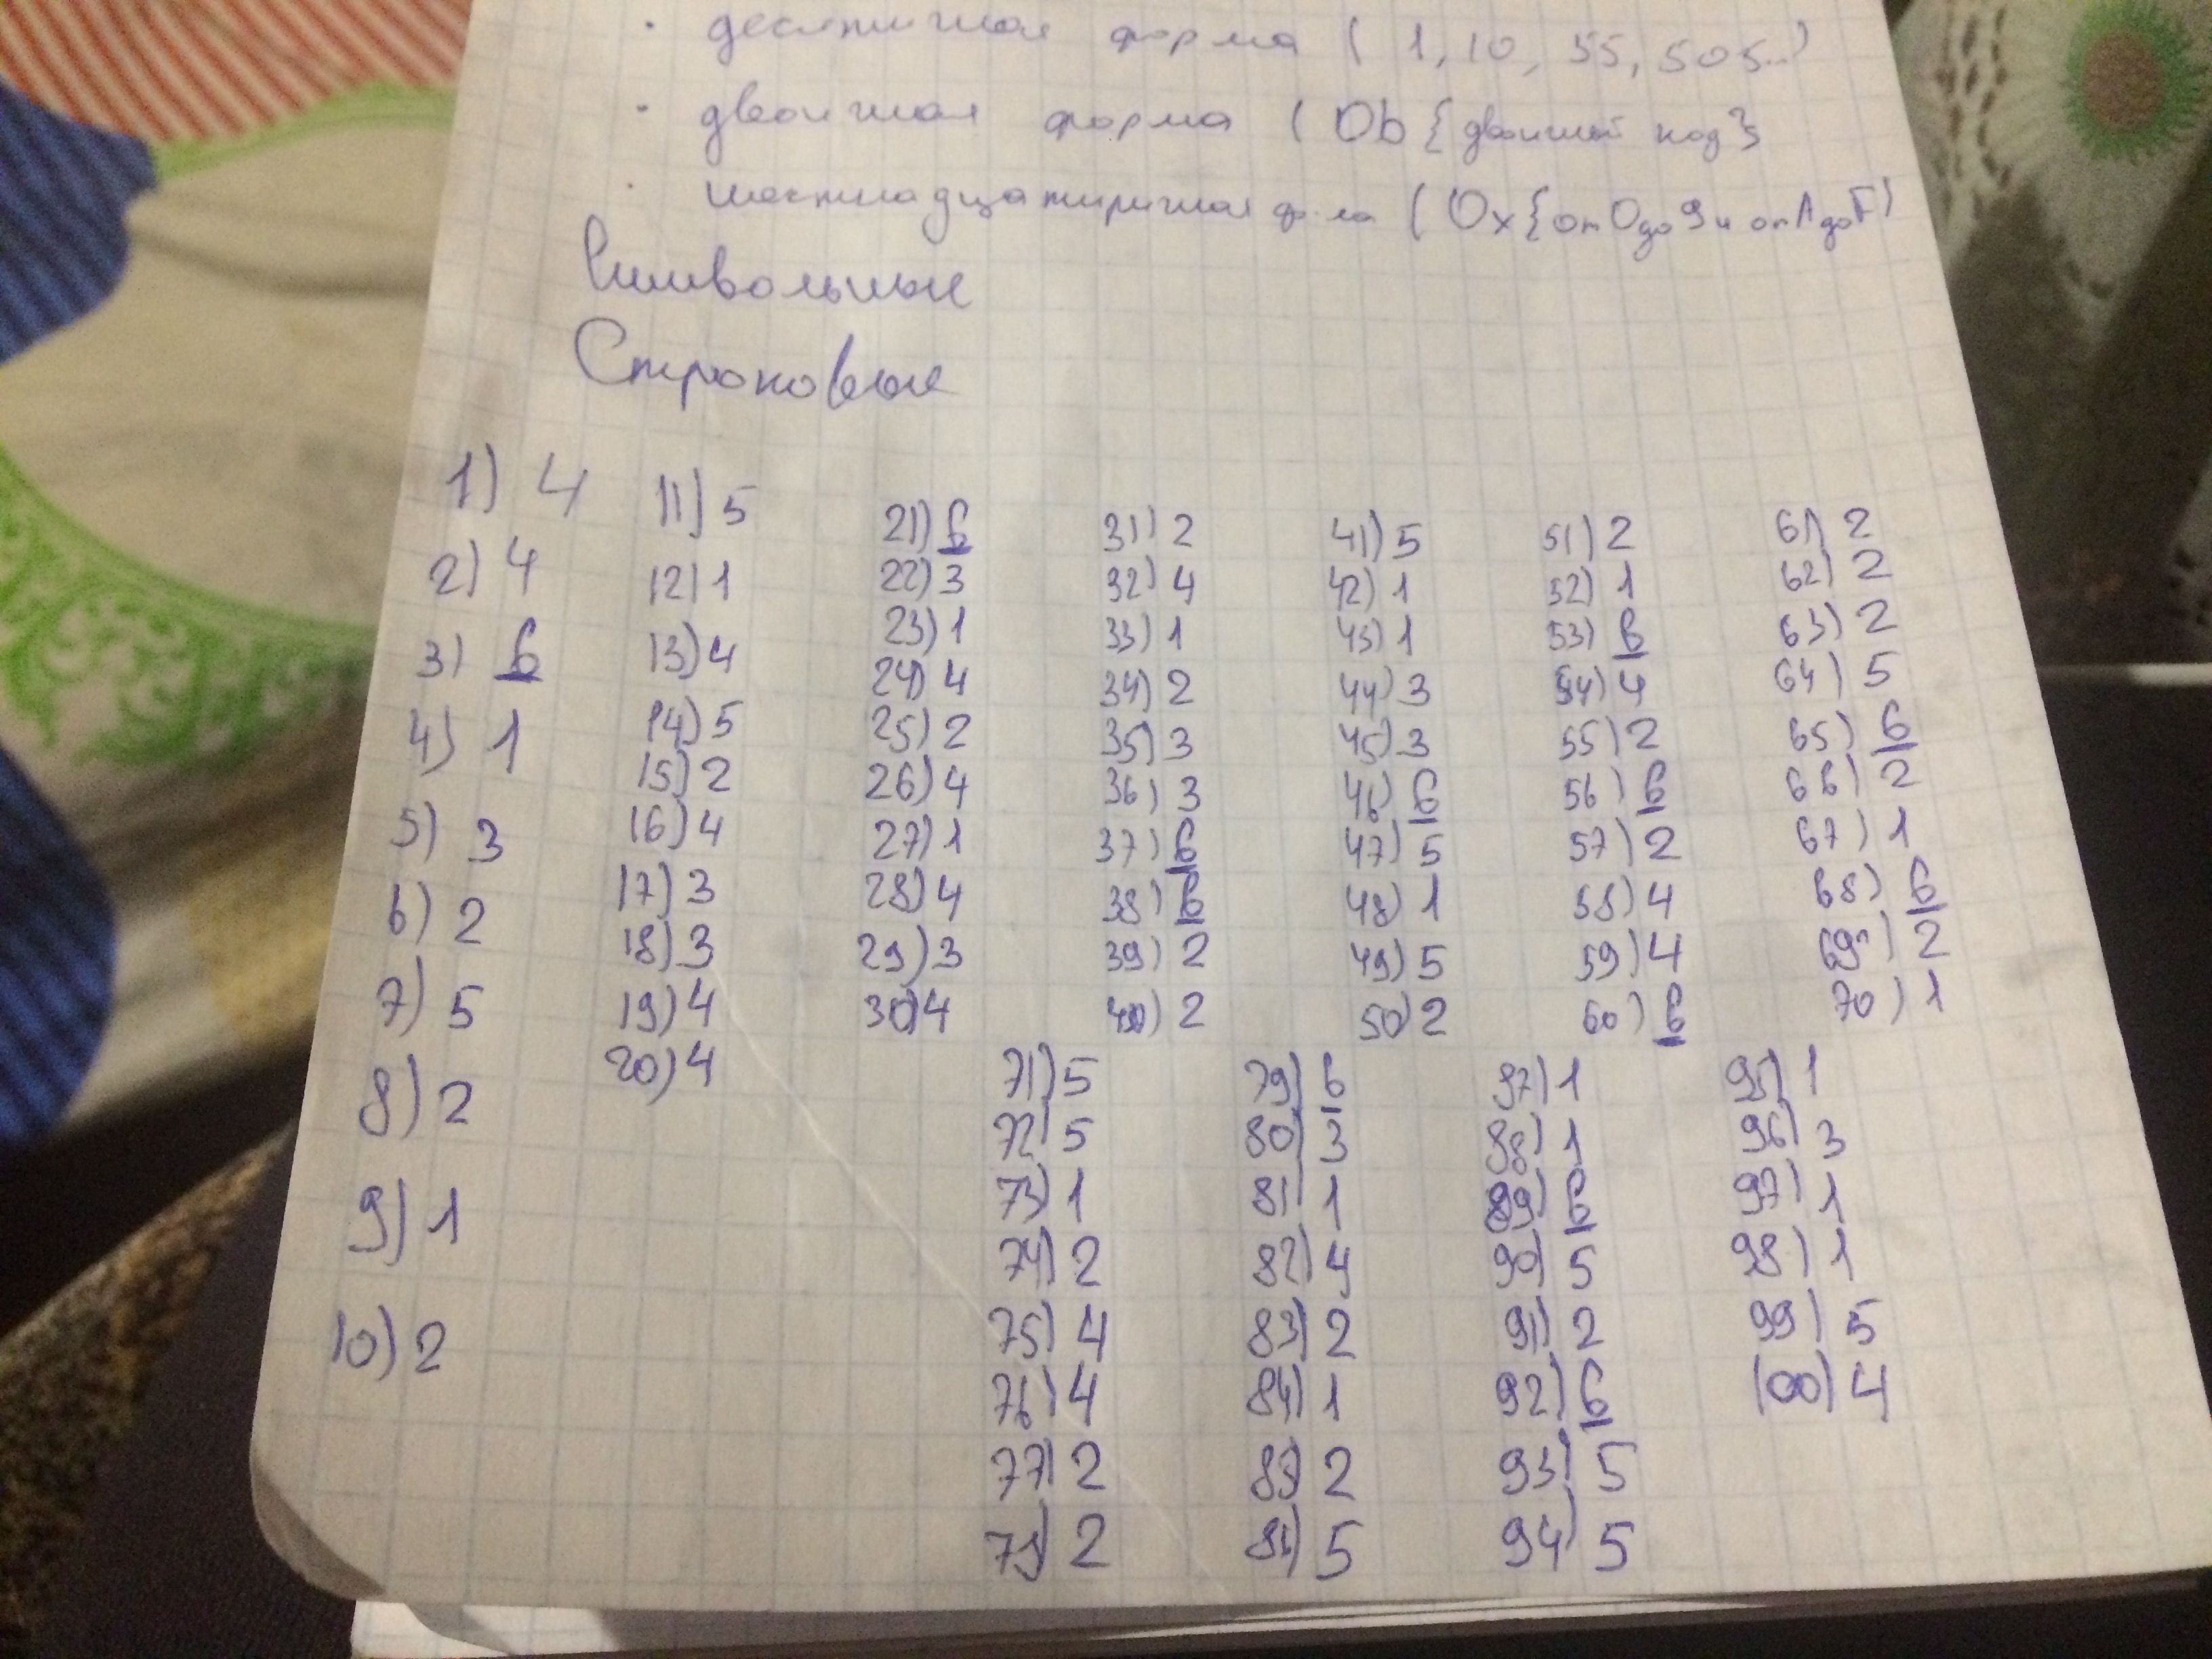 · десятичная форма ( 1, 10, 55, 505..)
· двоичная форма ( 0b{двоичный код}
· шестнадцатиричная ф-ма ( 0x{от 0 до 9 и от A до F)
Символьные
Строковые
1) 4
2) 4
3) 6
4) 1
5) 3
6) 2
7) 5
8) 2
9) 1
10) 2
11) 5
12) 1
13) 4
14) 5
15) 2
16) 4
17) 3
18) 3
19) 4
20) 4
21) 6
22) 3
23) 1
24) 4
25) 2
26) 4
27) 1
28) 4
29) 3
30) 4
31) 2
32) 4
33) 1
34) 2
35) 3
36) 3
37) 6
38) 6
39) 2
40) 2
41) 5
42) 1
43) 1
44) 3
45) 3
46) 6
47) 5
48) 1
49) 5
50) 2
51) 2
52) 1
53) 6
54) 4
55) 2
56) 6
57) 2
58) 4
59) 4
60) 6
61) 2
62) 2
63) 2
64) 5
65) 6
66) 2
67) 1
68) 6
69) 2
70) 1
71) 5
72) 5
73) 1
74) 2
75) 4
76) 4
77) 2
78) 2
79) 6
80) 3
81) 1
82) 4
83) 2
84) 1
85) 2
86) 5
97) 1
88) 1
89) 6
90) 5
91) 2
92) 6
93) 5
94) 5
95) 1
96) 3
97) 1
98) 1
99) 5
100) 4